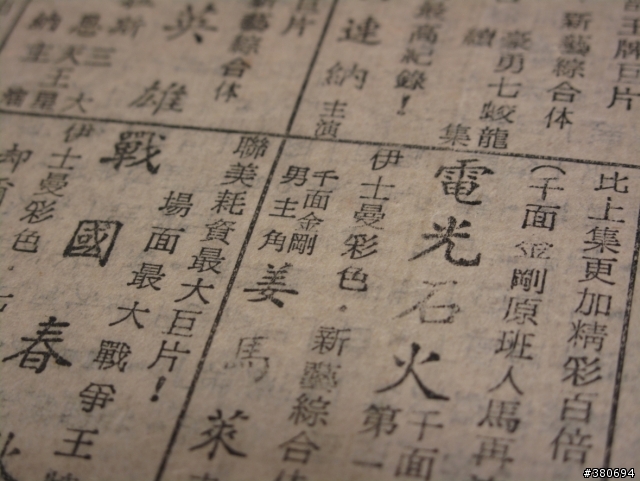 王牌巨片
新藝綜合体
豪勇七蛟龍
續集
最高紀錄！
納
主演
巨片
新藝綜合体
英雄
斯
三大
天王星
納主
比上集更加精彩百倍
（千面金剛原班人馬再
電光石火
千面
第一
伊士曼彩色．新藝綜合体
千面金剛
男主角
姜馬萊
聯美耗資最大巨片！
場面最大戰爭王
戰國春
伊士曼彩色．
却
#380694